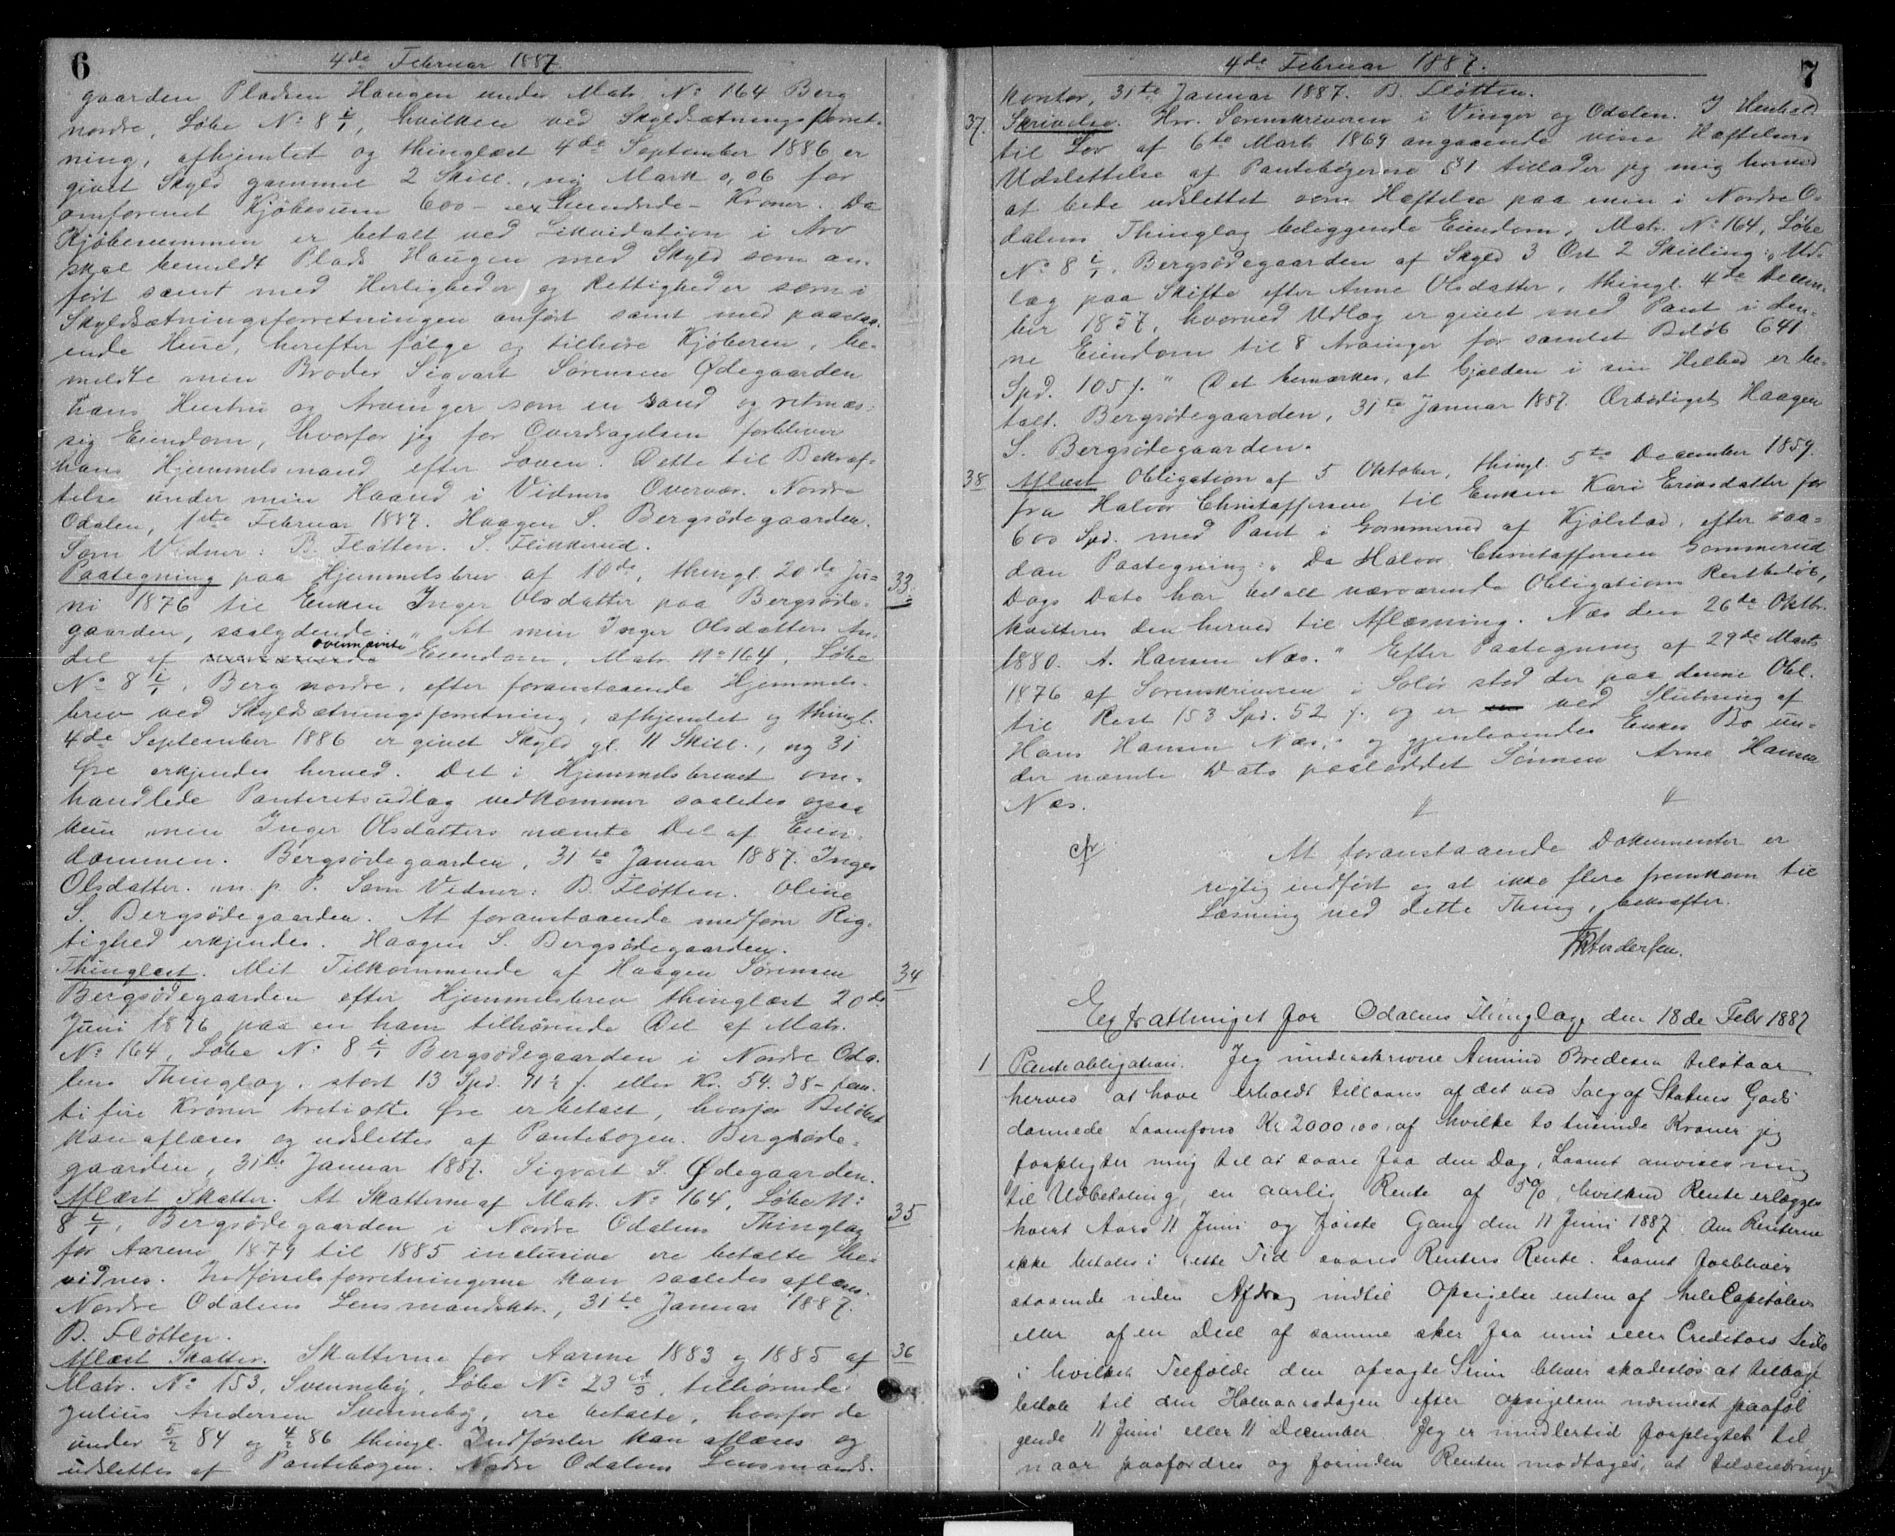 6
4de Februar 1887.
gaarden Pladsen Haugen under Matr. No 164 Berg
nordre, Løbe No 8 i/1, hvilken ved Skyldsætningsforret-
ning, afhjemlet og thinglæst 4de September 1886 er
givet Skyld gammel 2 Skill., ny Mark 0,06 for
omforenet Kjøbesum 600 - sex hundrede - Kroner. Da
Kjøbesummen er betalt ved Likvidation i Arv
skal bemeldt Plads Haugen med Skyld som an-
ført samt med Herligheder og Rettigheder som i
Skyldsætningsforretningen anført samt med paastaa-
ende Huse, herefter følge og tilhøre Kjøberen, be-
meldte min Broder Sigvart Sørensen Ødegaarden
hans Hustru og Arvinger som en sand og retmæs-
sig Eiendom, hvorfor jeg for Overdragelsen forbliver
hans Hjemmelsmand efter Loven. Dette til Bekræf-
telse under min Haand i Vidners Overvær. Nordre
Odalen, 1ste Februar 1887. Haagen S. Bergsødegaarden.
Som Vidner: B. Fløtten. S. Flikkerud.
33. Paategning paa Hjemmelsbrev af 10de, thingl. 20de Ju-
ni 1876 til Enken Inger Olsdatter paa Bergsøde-
gaarden, saalydende: "At min Inger Olsdatters An-
del af ovennævnte Eiendom, Matr. No 164, Løbe
No 8 i/1, Berg nordre, efter foranstaaende Hjemmels-
brev ved Skyldsætningsforretning, afhjemlet og thingl.
4de September 1886 er givet Skyld gl. 11 Skill., ny 31
Øre erkjendes herved. Det i Hjemmelsbrevet om-
handlede Panteretsudlæg vedkommer saaledes ogsaa
kun min Inger Olsdatters nævnte Del af Eien-
dommen. Bergsødegaarden, 31te Januar 1887. Inger
Olsdatter m. p. P. Som Vidner: B. Fløtten. Oline
S. Bergsødegaarden. At foranstaaende medfører Rig-
tighed erkjendes. Haagen S. Bergsødegaarden.
34 Thinglæst. Mit Tilkommende af Haagen Sørensen
Bergsødegaarden efter Hjemmelsbrev thinglæst 20de
Juni 1876 paa en ham tilhørende Del af Matr.
No 164, Løbe No 8 i/1 Bergsødegaarden i Nordre Oda-
lens Thinglag, stort 13 Spd. 71½ s. eller Kr. 54.38 - fem-
ti fire Kroner tretiotte Øre er betalt, hvorfor Beløbet
kan aflæses og udslettes af Pantebogen. Bergsøde-
gaarden, 31te Januar 1887. Sigvart S. Ødegaarden.
35 Aflæst Skatter. At Skatterne af Matr. No 164, Løbe No
8 i/1, Bergsødegaarden i Nordre Odalens Thinglag
for Aarene 1879 til 1885 inclusive ere betalte be-
vidnes. Indførselsforretningerne kan saaledes aflæses.
Nordre Odalens Lensmandsktr., 31te Januar 1887.
B. Fløtten.
36 Aflæst Skatter. Skatterne for Aarene 1883 og 1885 af
Matr. No 153, Svenneby, Løbe No 23, tilhørende
Julius Andersen Svenneby, ere betalte, hvorfor de
under 5/2 84 og 4/2 86 thingl. Indførsler kan aflæses og
udslettes af Pantebogen. Nordre Odalens Lensmands-
7
4de Februar 1887.
kontor, 31te Januar 1887. B. Fløtten.
37. Skrivelse. Hr. Sorenskriveren i Vinger og Odalen. I Henhold
til Lov af 6te Marts 1869 angaaende visse Hæftelsers
Udslettelse af Pantebøgerne §1 tillader jeg mig herved
at bede udslettet som Hæftelse paa min i Nordre O-
dalens Thinglag beliggende Eiendom, Matr. No 164, Løbe
No 8 i/1, Bergsødegaarden af Skyld 3 Ort 2 Skilling: "Ud-
læg paa Skifte efter Anne Olsdatter, thingl. 4de Decem-
ber 1857, hvorved Udlæg er givet med Pant i den-
ne Eiendom til 8 Arvinger for samlet Beløb 641
Spd. 105 s." Det bemærkes, at Gjælden i sin Helhed er be-
talt. Bergsødegaarden, 31te Januar 1887. Ærbødigst Haagen
S. Bergsødegaarden.
38 Aflæst Obligation af 5 Oktober, thingl. 5te December 1859.
fra Halvor Christoffersen til Enken Kari Eriksdatter for
600 Spd. med Pant i Gommerud af Kjølstad, efter saa-
dan Paategning: "Da Halvor Christoffersen Gommerud
Dags Dato har betalt nærværende Obligations Restbeløb,
kvitteres den herved til Aflæsning. Næs den 26de Oktbr.
1880. A. Hansen Næs." Efter Paategning af 29de Marts
1876 af Sorenskriveren i Solør stod der paa denne Obl.
til Rest 153 Spd. 52 s. og er ved Slutning af
Hans Hansen Næs's og gjenlevendes Enkes Bo un-
der nævnte Dato paaloddet Sønnen Arne Hansen
Næs.
cfr At foranstaaende Dokumenter er
rigtig indført og at ikke flere fremkom til
Læsning ved dette Thing, bekræfter.
Extrathinget for Odalens Thinglag den 18de Febr 1887
1 Panteobligation. Jeg underskrevne Amund Bredesen tilstaar
herved at have erholdt tillaans af det ved Salg af Statens Gods
dannede Laanefond Kr 2000,00, af hvilke to tusinde Kroner jeg
forpligter mig til at svare fra den Dag, Laanet anvises mig
til Udbetaling, en aarlig Rente af 5%, hvilken Rente erlægges
hvert Aars 11 Juni og første Gang den 11 Juni 1887. Om Renterne
ikke betales i rette Tid svares Renters Rente. Laanet forbliver
staaende uden Afdrag indtil Opsigelse enten af hele Capitalen
eller af en Deel af samme sker fra min eller Creditors Side
i hvilket Tilfælde den opsagte Sum bliver skadesløs at tilbage
betale til den Halvaarsdagen efter Opsigelsen nærmest paaføl
gende 11 Juni eller 11 December. Jeg er imidlertid forpligtet til,
naar paafordres og forinden Renten modtages, at tilveiebringe